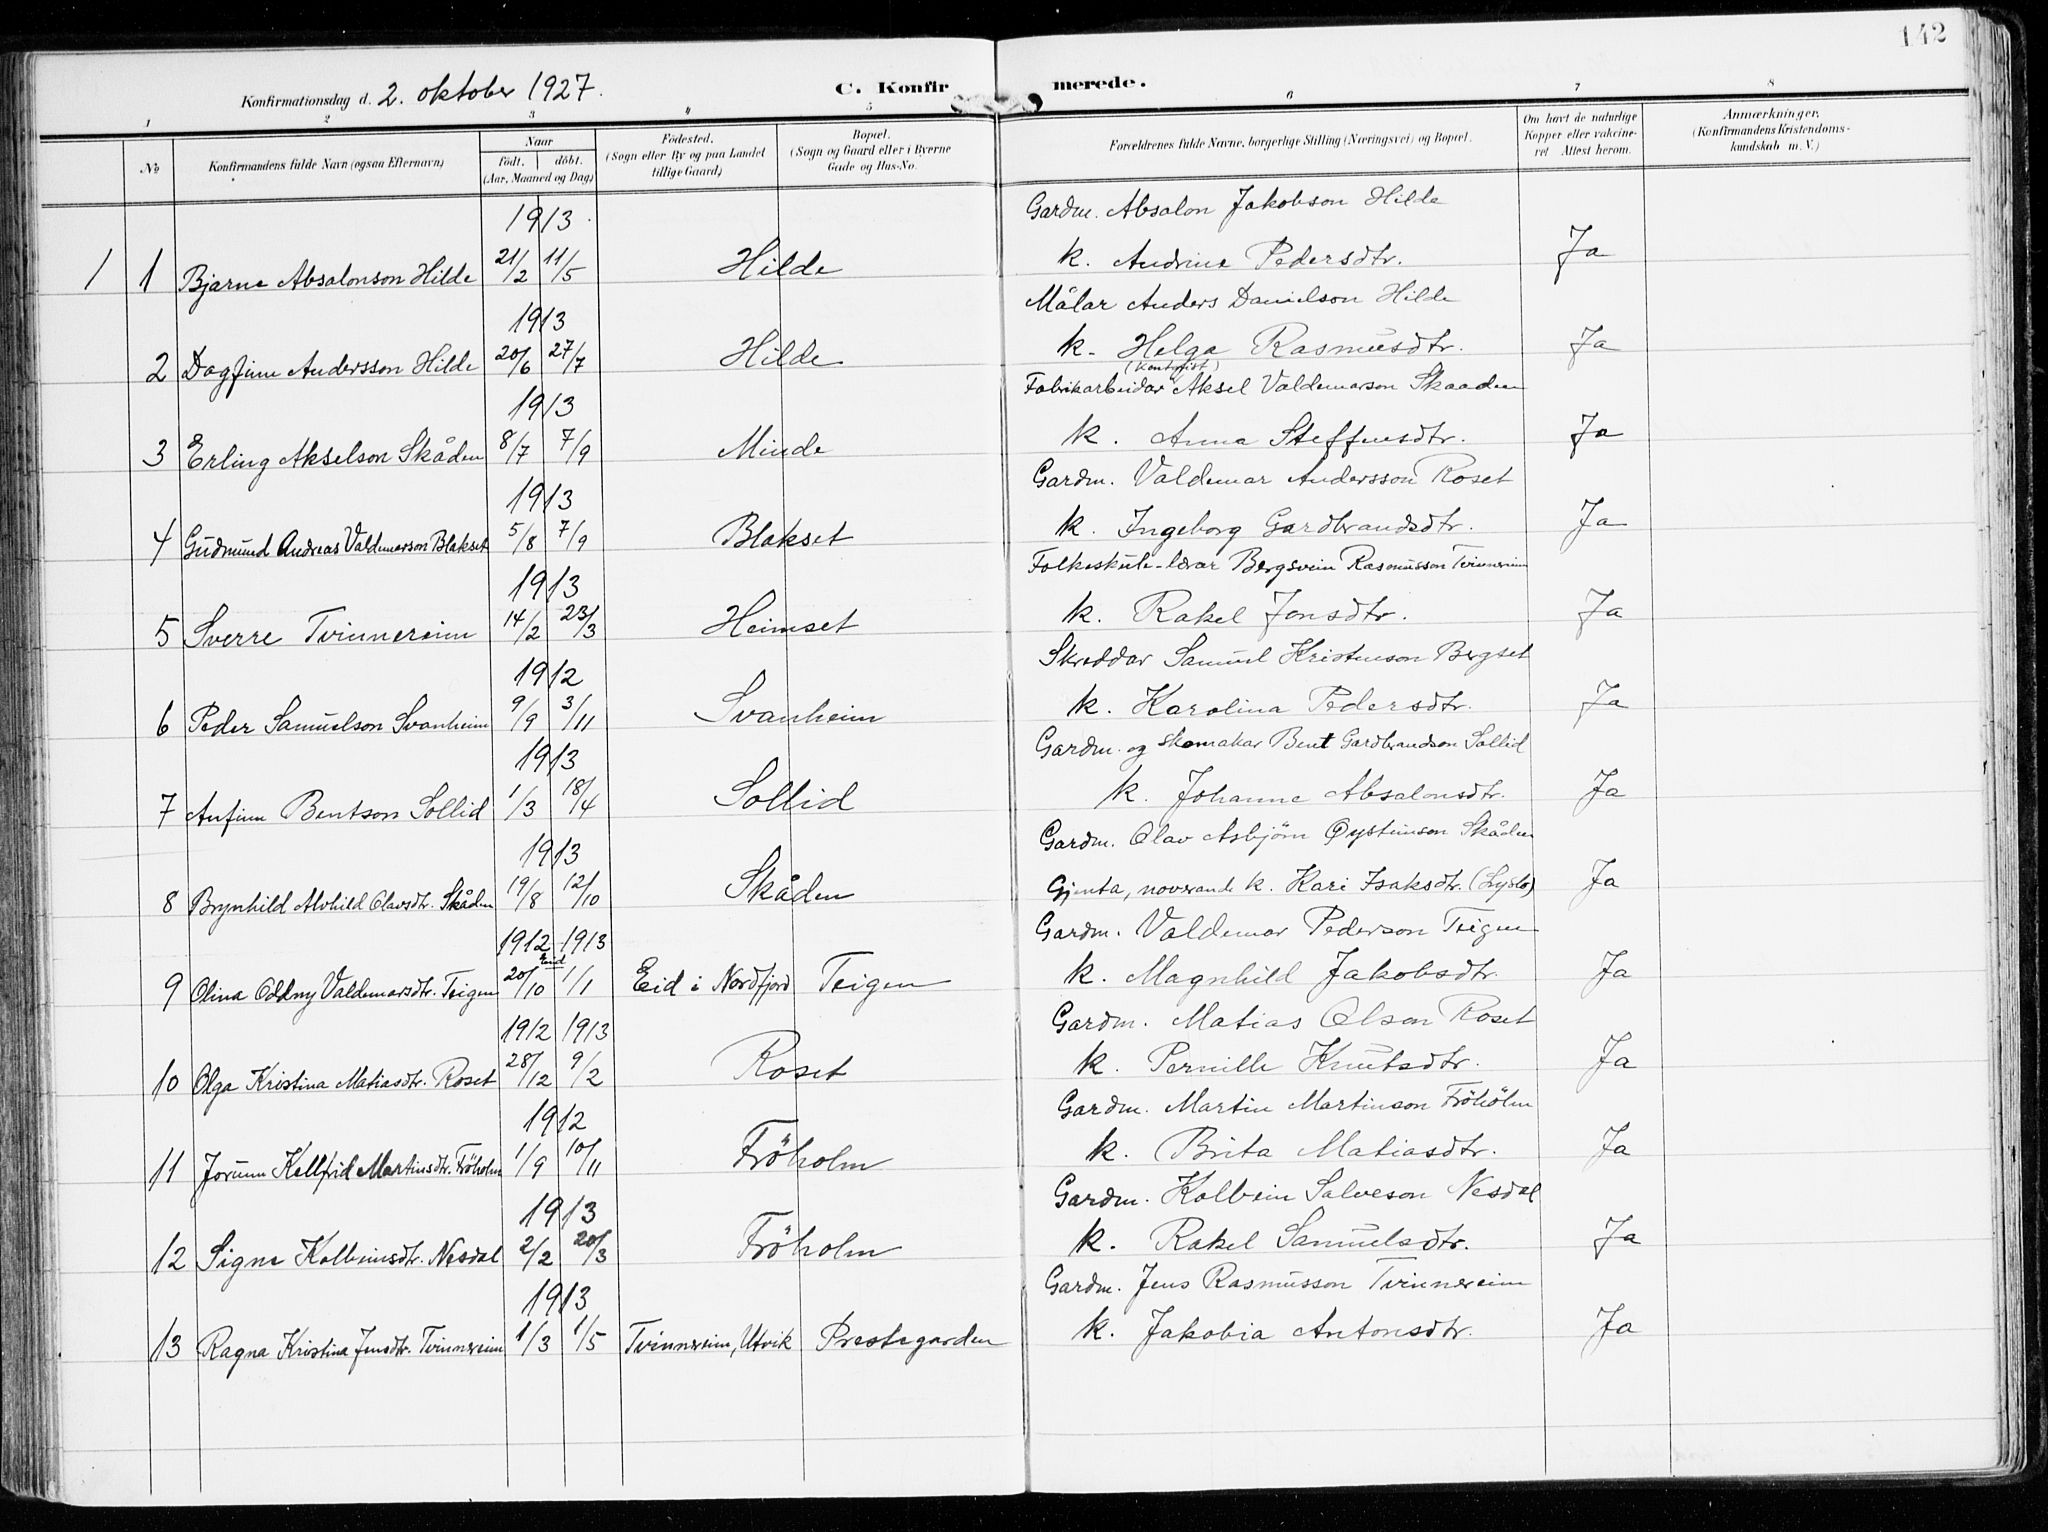 142
Konfirmationsdag d. 2. oktober 1927.
C. Konfirmerede.
1 2 3 4 5 6 7 8
No
Konfirmandens fulde Navn (ogsaa Efternavn)
Naar
födt. döbt.
(Aar, Maaned og Dag)
Födested.
(Sogn eller By og paa Landet
tillige Gaard)
Bopæl.
(Sogn og Gaard eller i Byerne
Gade og Hus-No.
Forældrenes fulde Navne, borgerlige Stilling (Næringsvei) og Bopæl.
Om havt de naturlige
Kopper eller vakcine-
ret Attest herom.
Anmærkninger.
(Konfirmandens Kristendoms-
kundskab m. V.)
1913. Gardm. Absalon Jakobson Hilde
1 1 Bjarne Absalonson Hilde 21/2 11/5 Hilde k. Andrine Pedersdtr. Ja
1913 Målar Anders Danielson Hilde
2 Dagfinn Andersson Hilde 20/6 27/7 Hilde k. Helga Rasmusdtr. Ja
(Kontorist)
1913 Fabrikarbeidar Aksel Valdemarson Skaaden
3 Erling Akselson Skåden 8/7 7/9 Minde k. Anna Steffensdtr. Ja
1913 Gardm. Valdemar Andersson Roset
4 Gudmund Andreas Valdemarson Blakset 5/8 7/9 Blakset k. Ingeborg Gardbrandsdtr. Ja
1913 Folkeskule-lærar Bergsvein Rasmusson Tvinnereim
5 Sverre Tvinnereim 14/2 23/3 Heimset k. Rakel Jonsdtr. Ja
1912 Skreddar Samuel Kristenson Bergset
6 Peder Samuelson Svanheim 9/9 3/11 Svanheim k. Karolina Pedersdtr. Ja
1913 Gardm. og skomakar Bent Gardbrandson Sollid
7 Anfinn Bentson Sollid 1/3 18/4 Sollid k. Johanne Absalonsdtr. Ja
1913 Gardm. Olav Asbjörn Øysteinson Skåden
8 Brynhild Alvhild Olavsdtr. Skåden 19/8 12/10 Skåden Gjenta, noverande k. Kari Isaksdtr. Ja
1912 1913 Gardm. Valdemar Pederson Teigen
Eid
9 Olina Oddny Valdemarsdtr. Teigen 20/10 1/1 Eid i Nordfjord Teigen k. Magnhild Jakobsdtr. Ja
1912 1913 Gardm. Matias Olson Roset
10 Olga Kristina Matiasdtr. Roset 28/12 9/2 Roset k. Pernille Knutsdtr. Ja
1912 Gardm. Martin Martinson Fröhölm
11 Jorunn Kellfrid Martinsdtr. Fröholm 1/9 10/11 Fröholm k. Brita Matiasdtr. Ja
1913 Gardm. Kolbein Salveson Nesdal
12 Signe Kolbeinsdtr. Nesdal 2/2 20/3 Fröholm k. Rakel Samuelsdtr. Ja
1913 Gardm. Jens Rasmusson Tvinnereim
13 Ragna Kristina Jensdtr. Tvinnereim 1/3 1/5 Tvinnereim, Utvik Prestegarden k. Jakobia Antonsdtr. Ja